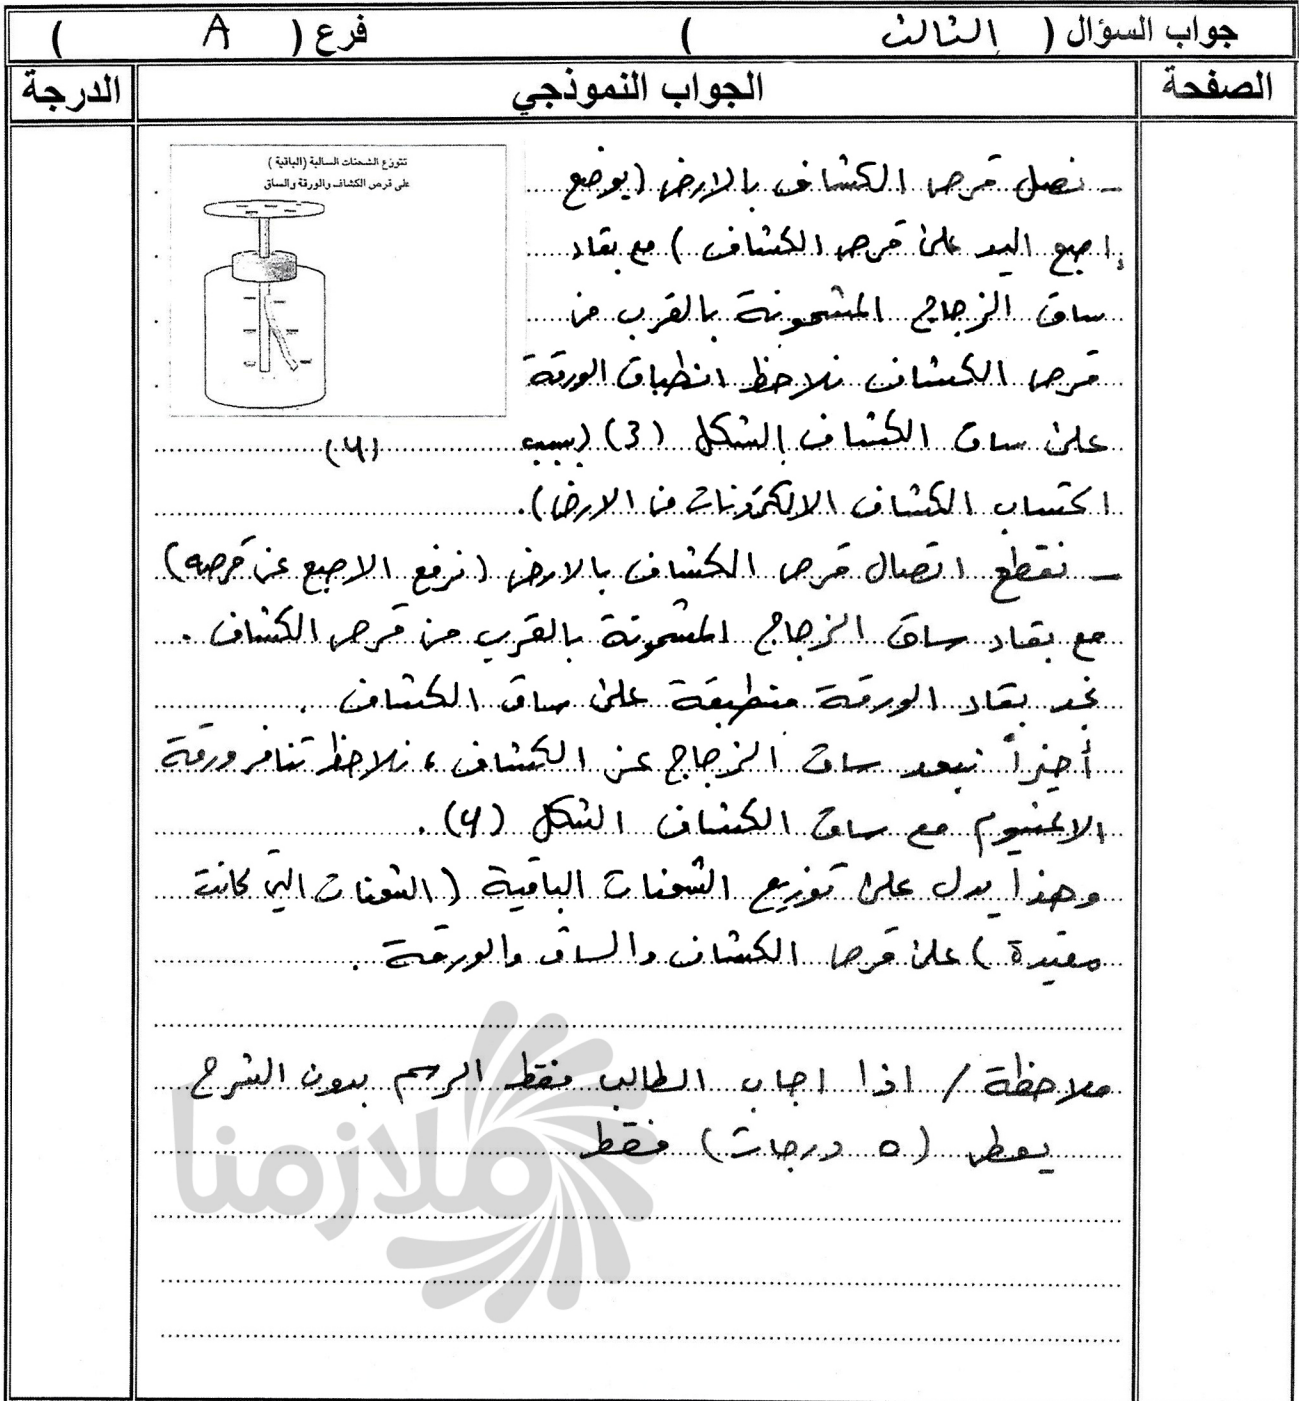 جواب السؤال ( الثالث ) فرع ( A )
الصفحة الجواب النموذجي الدرجة
تتوزع الشحنات السالبة (الباقية )
على قرص الكشاف والورقة والساق
ـ نصل قرص الكشاف بالارض (بوضع
إصبع اليد على قرص الكشاف ) مع بقاء
ساق الزجاج المشحونة بالقرب من
قرص الكشاف نلاحظ انطباق الورقة
على ساق الكشاف الشكل (3) (بسبب
(4)
اكتساب الكشاف الالكترونات من الارض).
ـ نقطع اتصال قرص الكشاف بالارض (نرفع الاصبع عن قرصه)
مع بقاء ساق الزجاج المشحونة بالقرب من قرص الكشاف .
نجد بقاء الورقة منطبقة على ساق الكشاف .
أخيراً نبعد ساق الزجاج عن الكشاف ، نلاحظ تنافر ورقة
الالمنيوم مع ساق الكشاف الشكل (4) .
وهذا يدل على توزيع الشحنات الباقية ( الشحنات التي كانت
مقيدة ) على قرص الكشاف والساق والورقة .
ملاحظة / اذا اجاب الطالب فقط الرسم بدون الشرح
يعطى (٥ درجات) فقط
ملازمنا